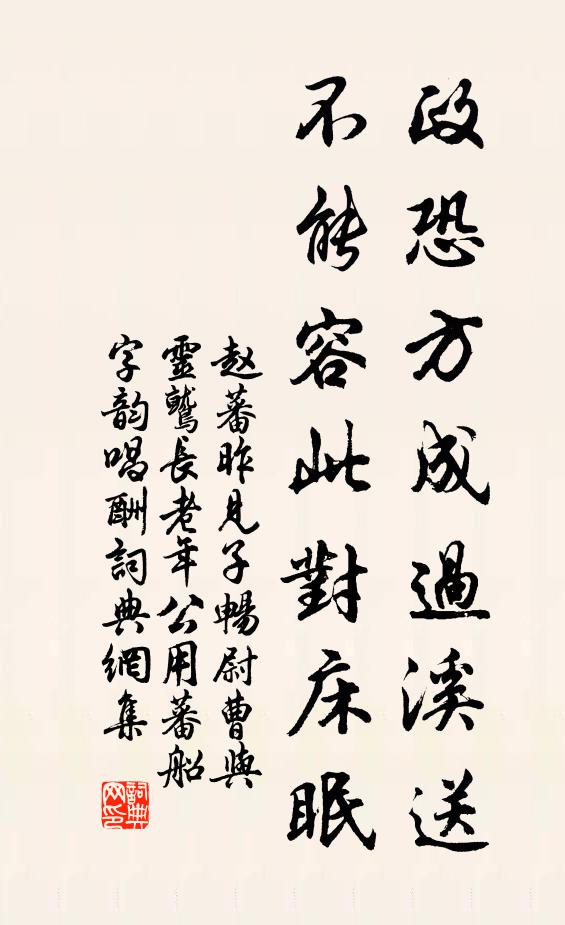 政恐方成過溪送
不能容此對床眠
赵蕃昨見子暢尉曹與
靈鷲長老年公用蕃船
字韵唱酬詞典網集
詞典
网印